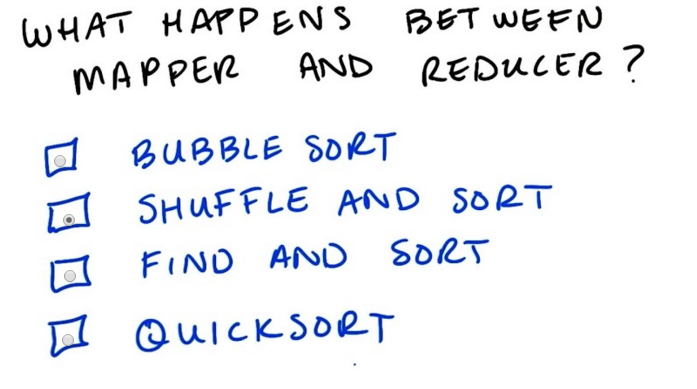 WHAT HAPPENS BETWEEN
MAPPER AND REDUCER?
BUBBLE SORT
SHUFFLE AND SORT
FIND AND SORT
QUICKSORT